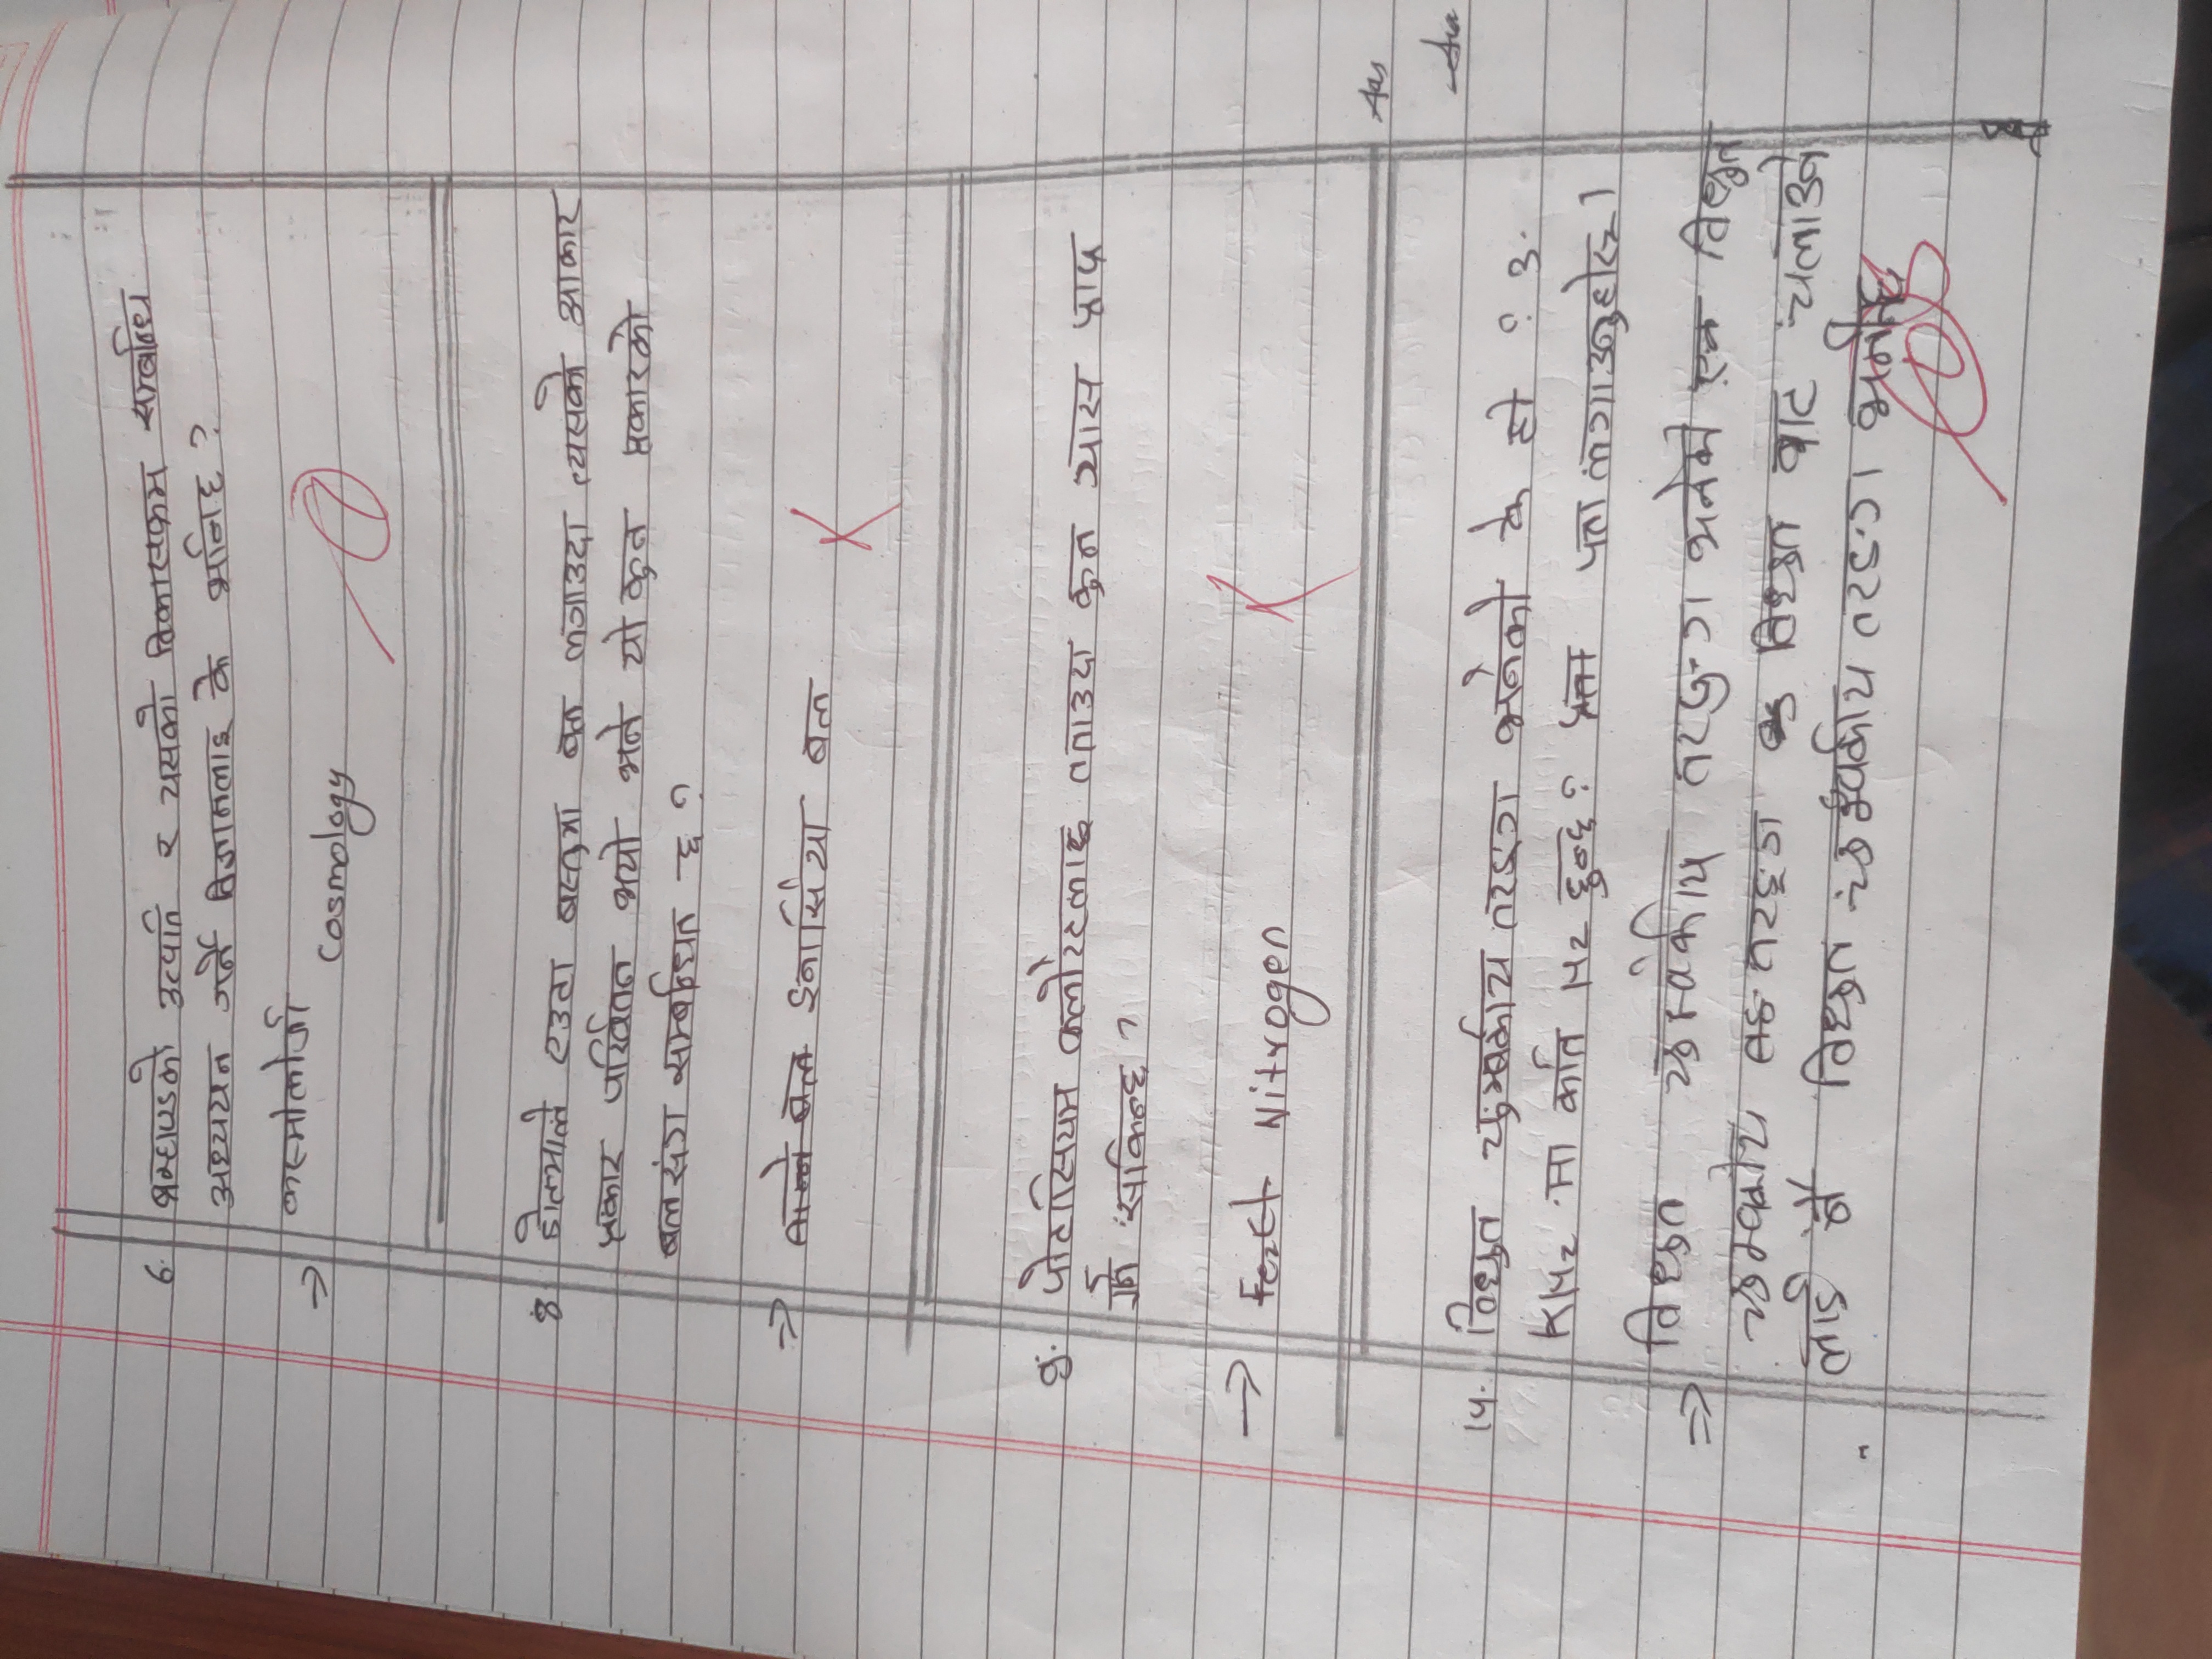 6. ब्रम्हाण्डको उत्पति र यसको विकासक्रम सम्बन्धि
अध्ययन गर्ने विज्ञानलाइ के भनिछ ?
⇒ कस्मोलोजी
Cosmology
8 डोल्माले एउटा बस्तुमा बल लगाउदा त्यसको आकार
प्रकार परिर्वतन भयो भने यो कुन प्रकारको
बलसंग सम्बन्धित छ ?
⇒ बल इनर्सिया बल
9. पोटासियम क्लोरेटलाइ तताउदा कुन ग्यास प्राप्त
गर्न सकिन्छ ?
→ Nitrogen
Aas
14. विधुत चुम्बकीय तरङग भनेको के हो ? 3.
KHz मा कति Hz हुन्छ ? पत्ता लगाउनुहोस् ।
⇒ विधुत चुम्वकीय तरङुग भनेको एक विधुत
चुम्वकीय तरङ्ग विधुत बाट चलाउने
लाई नै विधुत चुम्वकीय तरङग भनीन्छ